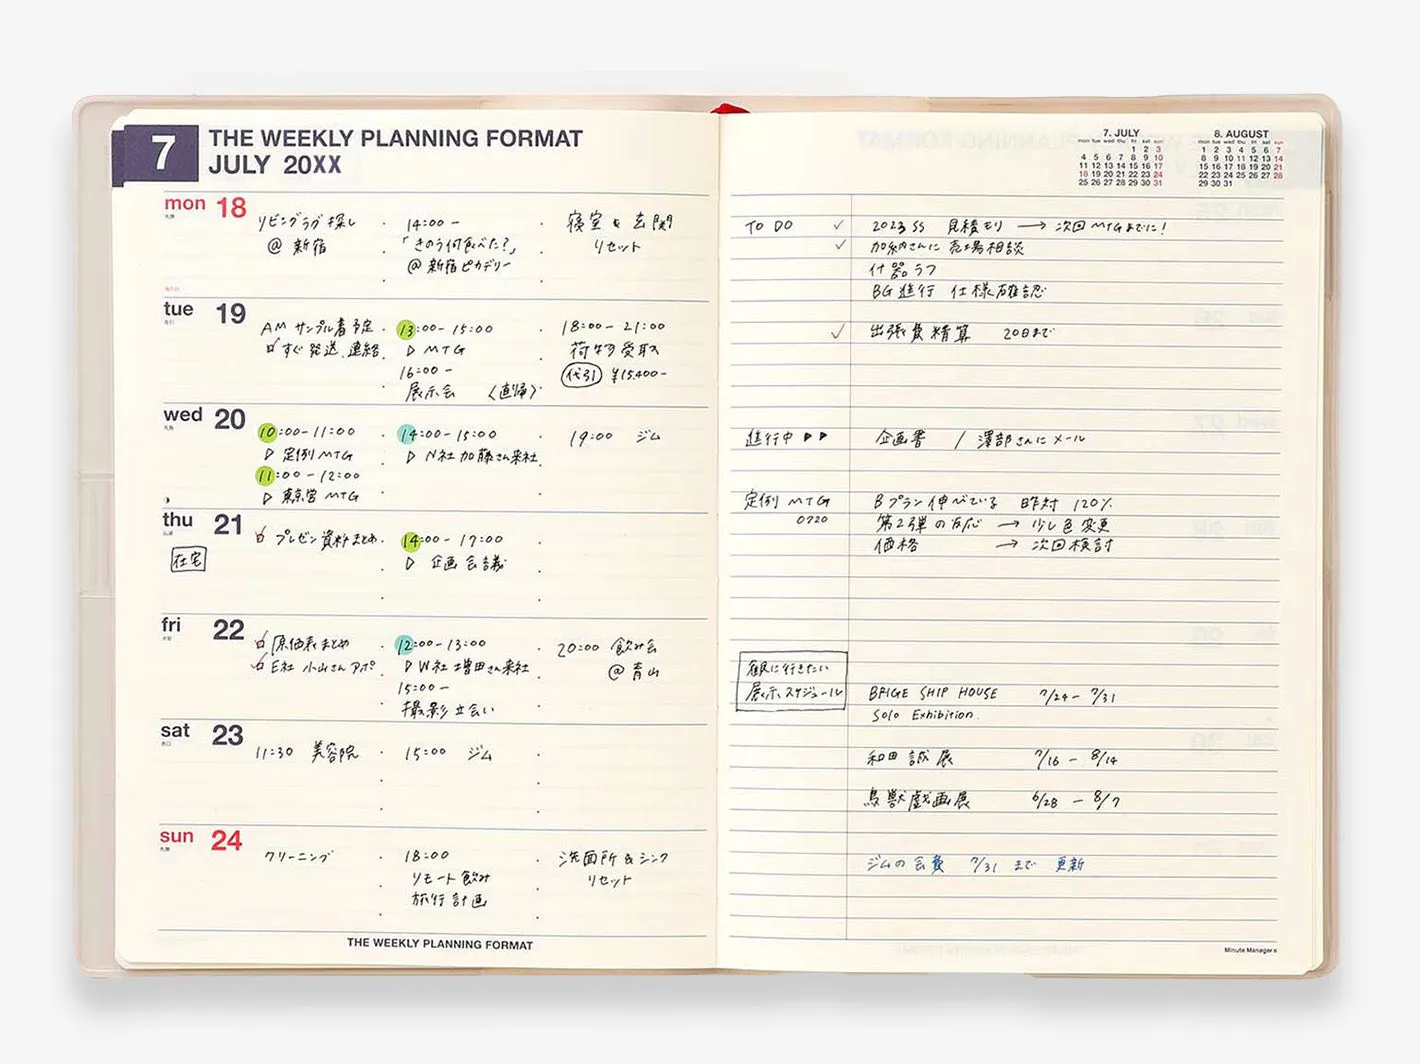 7
THE WEEKLY PLANNING FORMAT
JULY 20XX
mon 18
リビングラグ探し
@ 新宿
14:00 -
「きのう何食べた?」
@ 新宿ピカデリー
寝室 & 玄関
リセット
tue 19
AM サンプル着予定
すぐ発送、連絡
13:00- 15:00
▷ MTG
16:00 -
展示会 〈直帰〉
18:00 - 21:00
荷物受取
代引 ¥15,400-
wed 20
10:00-11:00
▷ 定例MTG
11:00 - 12:00
▷ 東京営 MTG
14:00-15:00
▷ N社 加藤さん来社
19:00 ジム
thu 21
在宅
プレゼン資料まとめ
14:00 - 17:00
▷ 企画会議
fri 22
原価表まとめ
E社 小山さんアポ
12:00-13:00
▷ W社 増田さん来社
15:00 -
撮影立会い
20:00 飲み会
@ 青山
sat 23
11:30 美容院
15:00 ジム
sun 24
クリーニング
18:00
リモート飲み
旅行計画
洗面所 & シンク
リセット
THE WEEKLY PLANNING FORMAT
7. JULY
mon tue wed thu fri sat sun
1 2 3
4 5 6 7 8 9 10
11 12 13 14 15 16 17
18 19 20 21 22 23 24
25 26 27 28 29 30 31
8. AUGUST
mon tue wed thu fri sat sun
1 2 3 4 5 6 7
8 9 10 11 12 13 14
15 16 17 18 19 20 21
22 23 24 25 26 27 28
29 30 31
TO DO ✓ 2023 SS 見積もり → 次回MTGまでに!
✓ 加納さんに売場相談
什器ラフ
BG進行 仕様確認
✓ 出張費精算 20日まで
進行中 ▶▶ 企画書 / 澤部さんにメール
定例 MTG Bプラン伸べている 昨対 120%
0720 第2弾の反応 → 少し色変更
価格 → 次回検討
観に行きたい
展示スケジュール
BRIGE SHIP HOUSE 7/24 - 7/31
Solo Exhibition.
和田誠展 7/16 - 8/14
鳥獣戯画展 6/28 - 8/7
ジムの会費 7/31 まで 更新
Minute Manager®